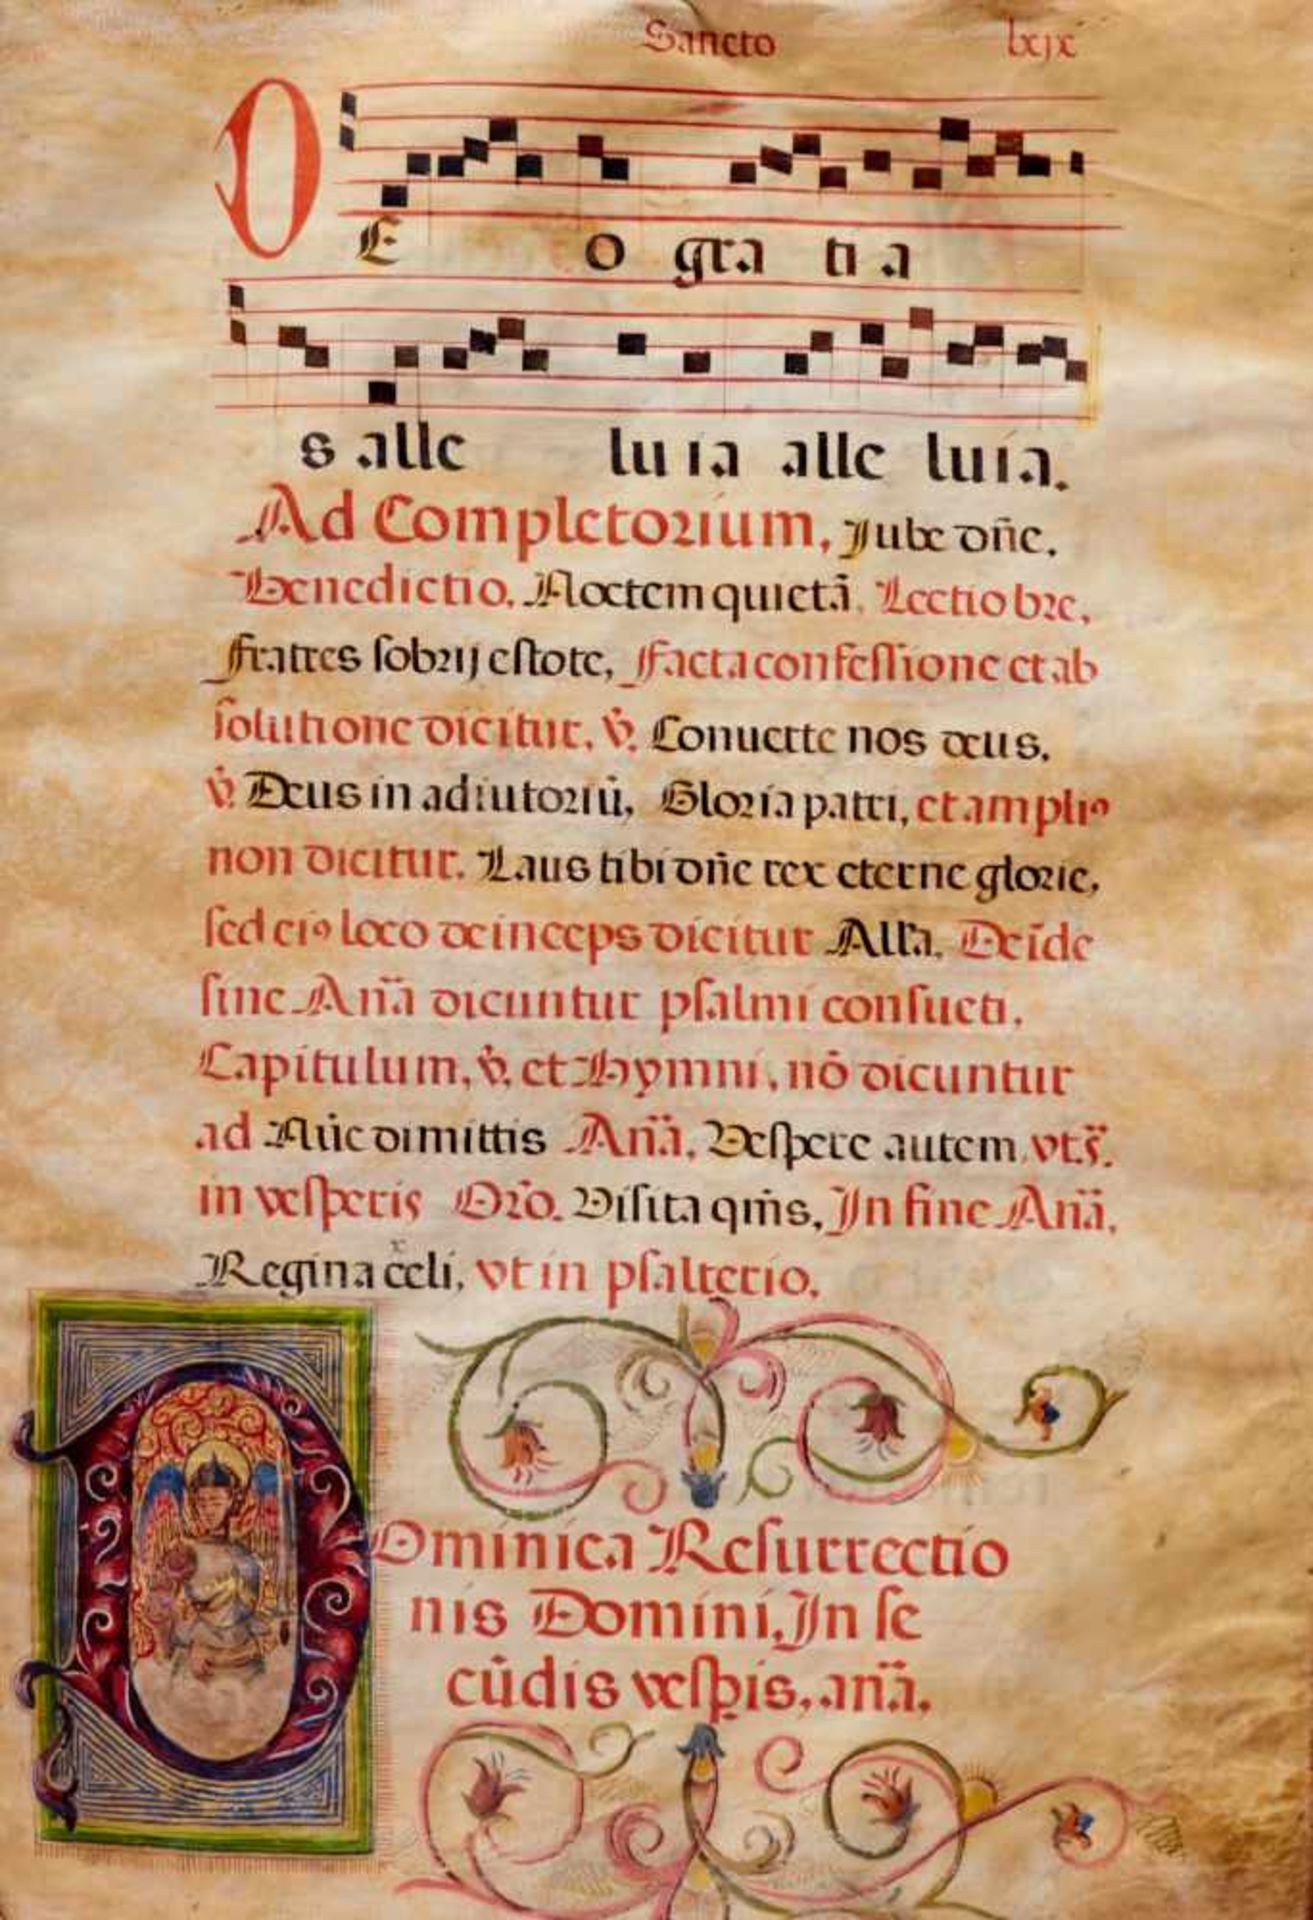 Sancto lxjx
DE o gra ti a
s alle lu ia alle luia.
Ad Completorium. Jube dñe.
Benedictio. Noctem quietā. Lectio bre.
Fratres sobrij estote, facta confessione et ab
solutione dicitur. ℣. Conuerte nos deus.
℣. Deus in adiutoriū, Gloria patri, et ampliꝰ
non dicitur. Laus tibi dñe rex eterne glorie,
sed eiꝰ loco deinceps dicitur Alľa. Deīde
sine Anā dicuntur psalmi consueti.
Capitulum, ℣. et Hymni, nō dicuntur
ad Nūc dimittis Anā. Vespere autem, vt.s̃.
in vesperis Orō. Visita qm̄s, In fine Anā,
Regina celi, vt in psalterio.
DOminica Resurrectio
nis Domini, In se
cūdis vesꝑis, anā.